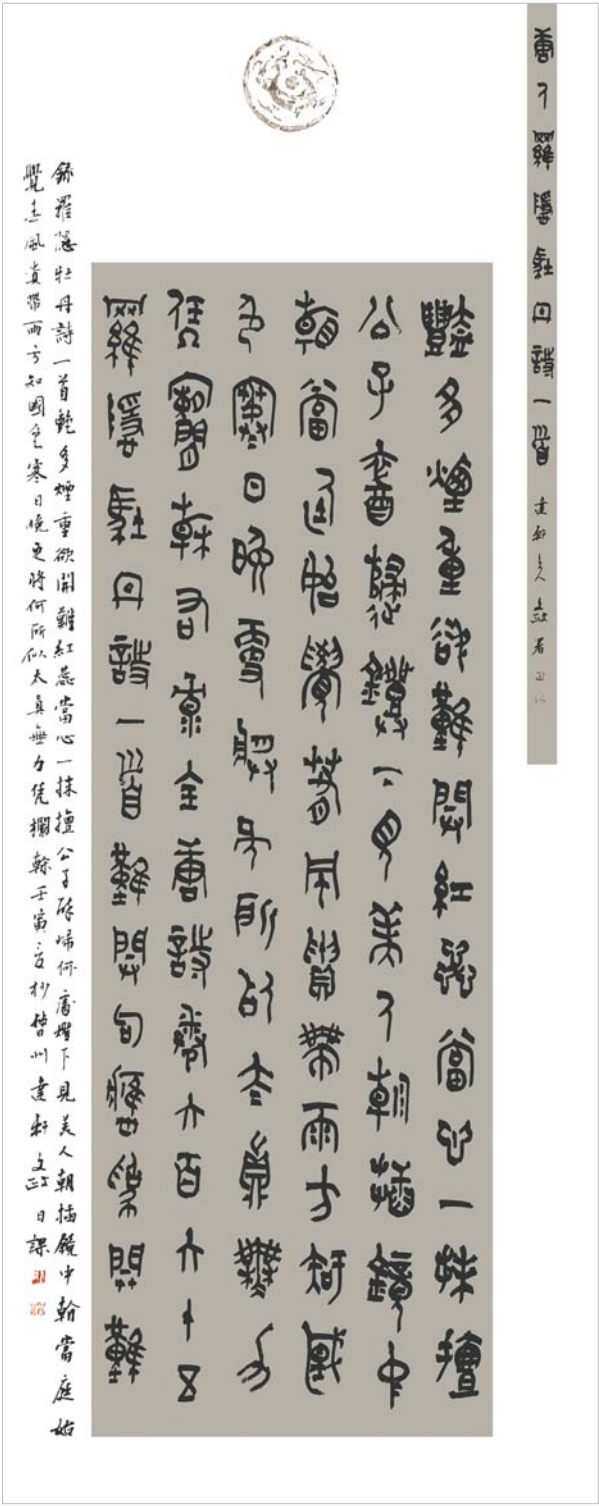 唐人羅隱牡丹詩一首 達軒主人文政署
豔多煙重欲難開紅蕊當心一抹檀
公子醉歸燈下見美人朝插鏡中
翰當庭始覺春風貴帶雨方知國
色寒日晚更將何所似太真無力
凭闌榦右录全唐詩卷六百六十五
羅隱牡丹詩一首難開句應作開難
錄羅隱牡丹詩一首豔多煙重欲開難紅蕊當心一抹檀公子醉歸何處燈下見美人朝插鏡中翰當庭始
覺春風貴帶雨方知國色寒日晚更將何所似太真無力凭欄榦壬寅夏杪曹州達軒文政日課